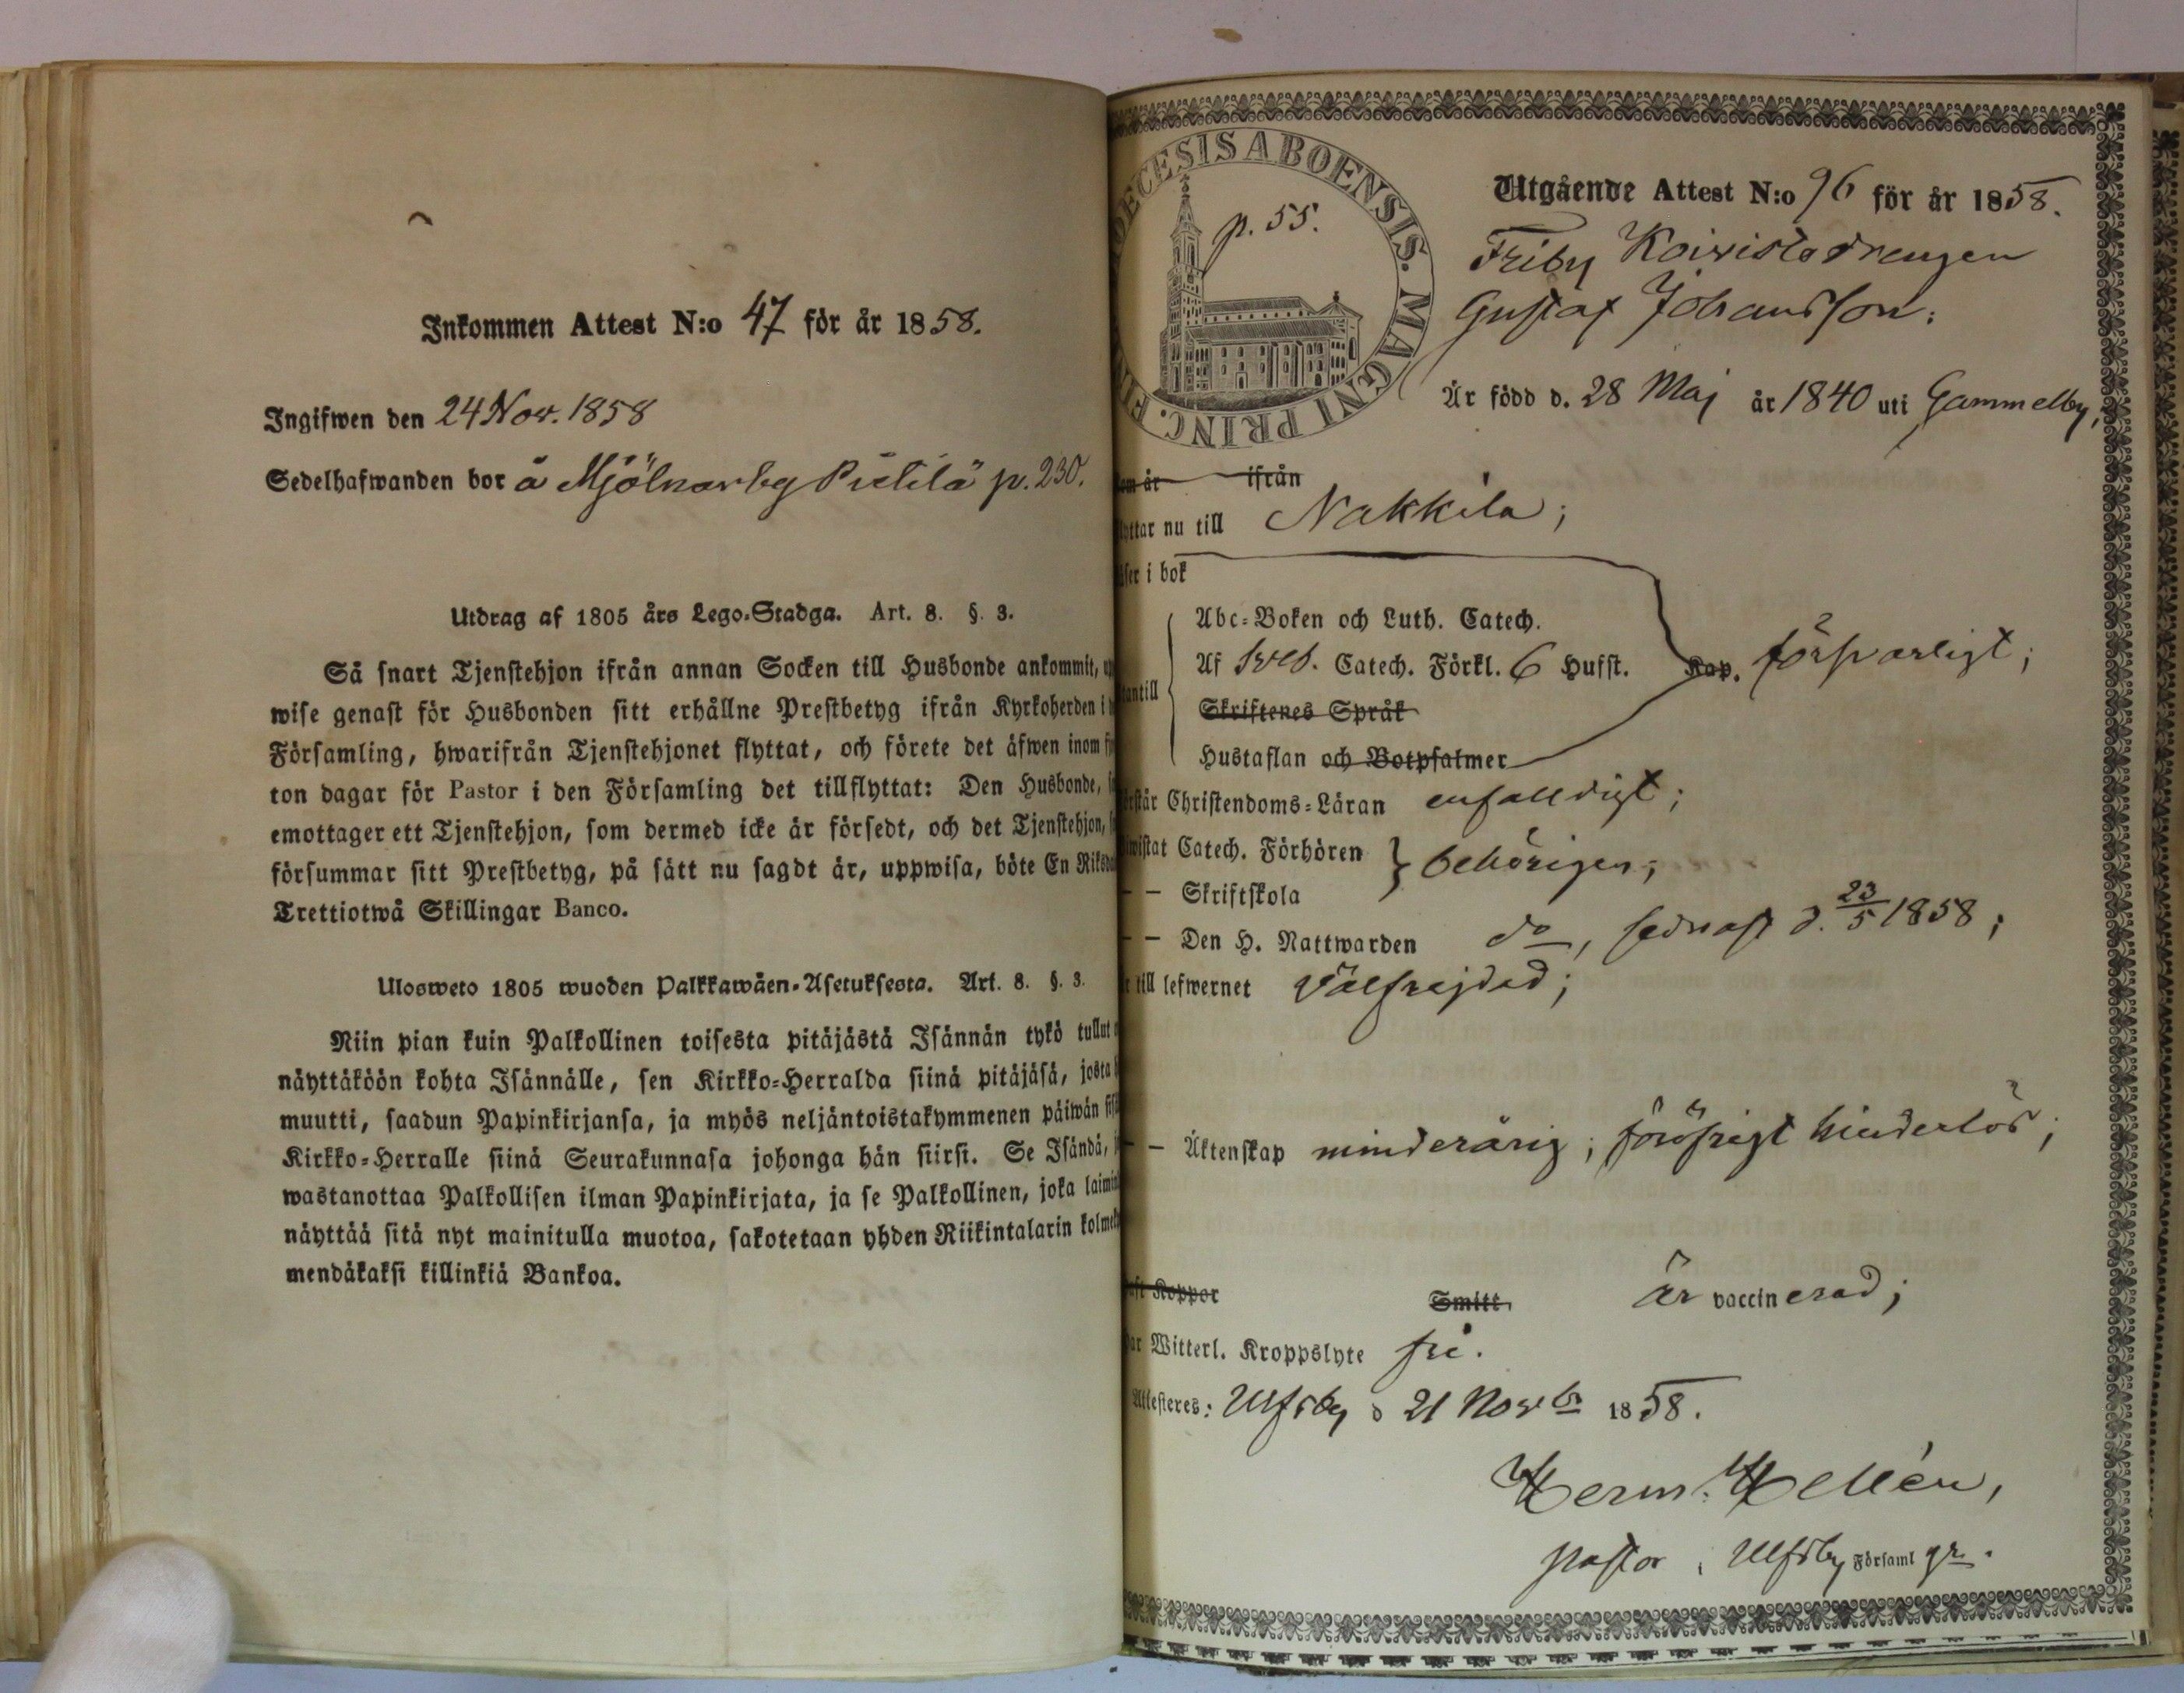 Inkommen Attest N:o 47 för år 1858.
Ingifwen den 24 Nov. 1858
Sedelhafwanden bor å Mjölnarby Pietilä p. 230.
Utdrag af 1805 års Lego-Stadga. Art. 8. §. 3.
Så snart Tjenstehjon ifrån annan Socken till Husbonde ankommit,
wise genast för Husbonden sitt erhållne Prestbetyg ifrån Kyrkoherden i
Församling, hwarifrån Tjenstehjonet flyttat, och förete det äfwen inom
ton dagar för Pastor i den Församling det tillflyttat: Den Husbonde,
emottager ett Tjenstehjon, som dermed icke är försedt, och det Tjenstehjon,
försummar sitt Prestbetyg, på sätt nu sagdt är, uppwisa, böte En Riksda
Trettiotwå Skillingar Banco.
Ulosweto 1805 wuoden Palkkawäen-Asetuksesta. Art. 8. §. 3.
Niin pian kuin Palkollinen toisesta pitäjästä Isännän tykö tullut
näyttäköön kohta Isännälle, sen Kirkko-Herralda siinä pitäjäsä, josta
muutti, saadun Papinkirjansa, ja myös neljäntoistakymmenen päiwän sisä
Kirkko-Herralle siinä Seurakunnasa johonga hän siirsi. Se Isändä,
wastanottaa Palkollisen ilman Papinkirjata, ja se Palkollinen, joka laimin
näyttää sitä nyt mainitulla muotoa, sakotetaan yhden Riikintalarin kolme
mendäkaksi killinkiä Bankoa.
DIOECESIS ABOENSIS. MAGNI PRINC. FIN
p. 55.
Utgående Attest N:o 96 för år 1858.
Friby Koivisto drengen
Gustaf Johansson;
Är född d. 28 Maj år 1840 uti Gammelby,
som är ifrån
flyttar nu till Nakkila;
läser i bok
Abc-Boken och Luth. Catech.
Af Sveb. Catech. Förkl. 6 Hufst. Kap. försvarligt;
utantill
Skriftenes Språk
Hustaflan och Botpsalmer
förstår Christendoms-Läran enfalldigt;
bewistat Catech. Förhören } behörigen;
— — Skriftskola
— — Den H. Nattwarden do, sednast d. 23/5 1858;
är till lefwernet välfrejdad;
— — Äktenskap minderårig; föröfrigt hinderlös;
haft Koppor Smitt är vaccinerad;
har Witterl. Kroppslyte fri.
Attesteres: Ulfsby d 21 Novbr 1858.
Herm: Hellén,
pastor i Ulfsby Församl gr.